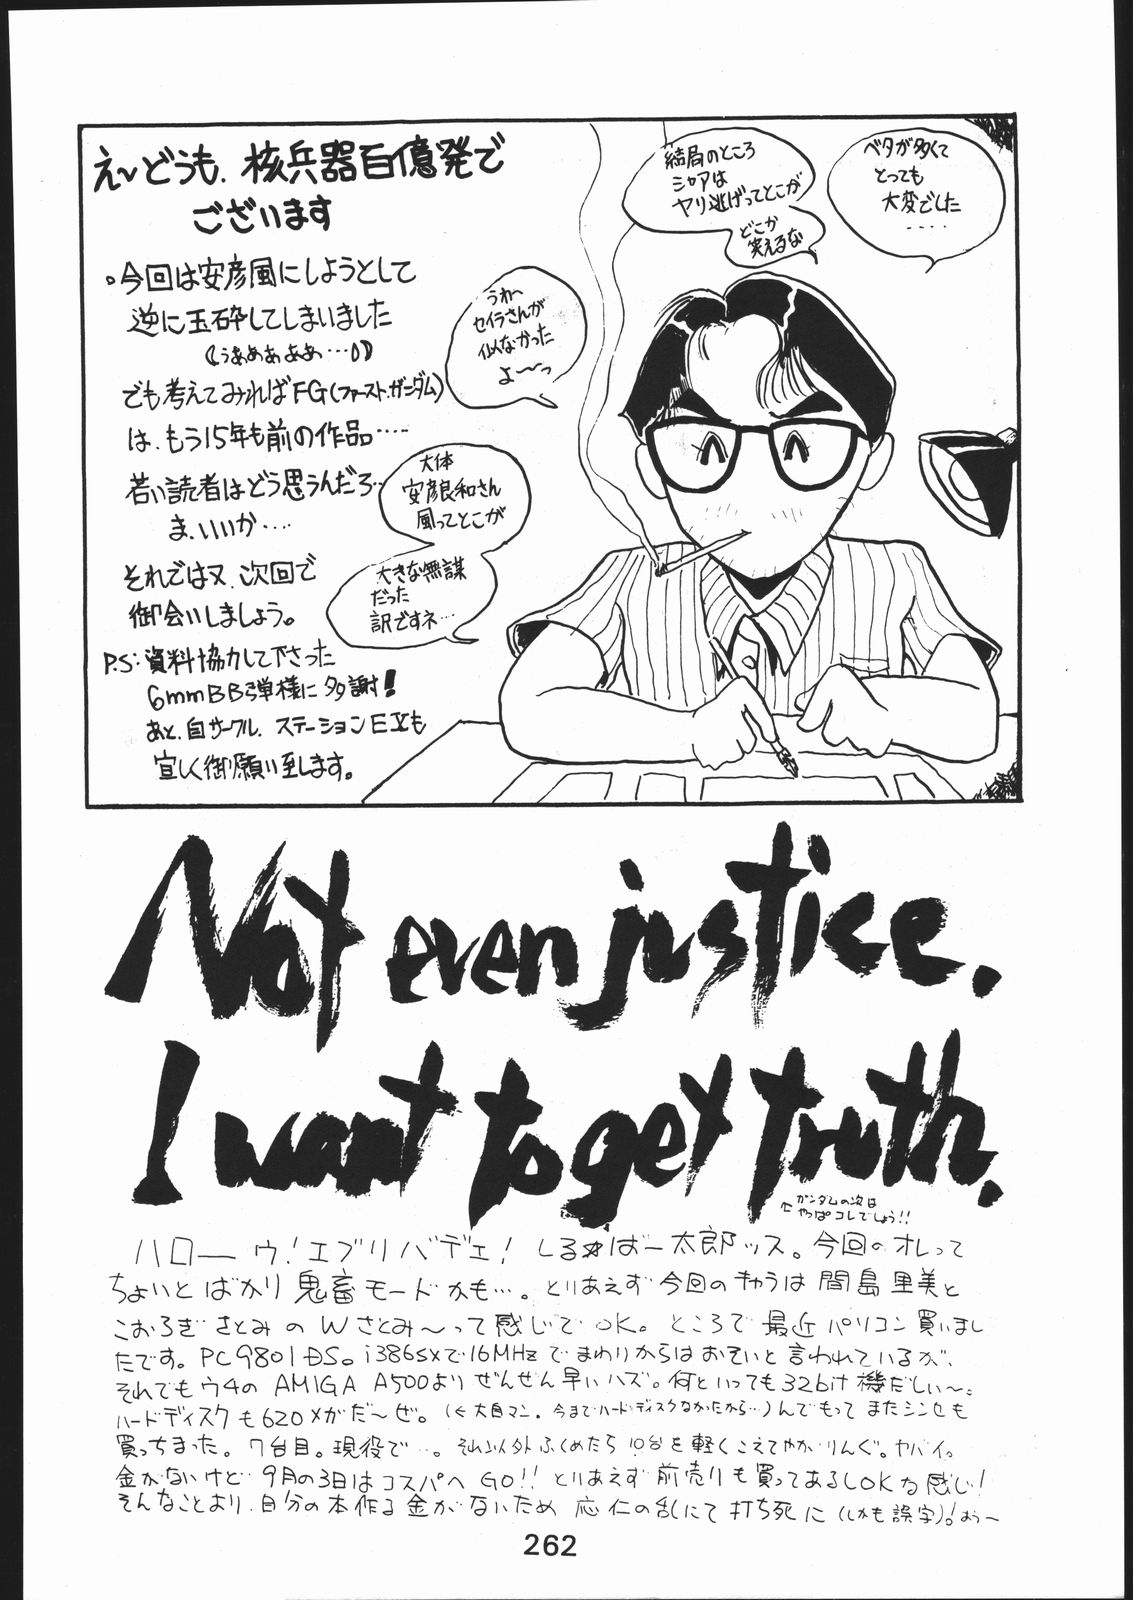 え〜どうも、核兵器百億発で
ございます
。今回は安彦風にしようとして
逆に玉砕してしまいました
でも考えてみればFG(ファーストガンダム)
は、もう15年も前の作品……
若い読者はどう思うんだろ…
ま、いいか……
それでは又、次回で
御会いしましょう。
P.S:資料協力して下さった
6mmBB弾様に多謝!
あと、自サークル、ステーションEXも
宜しく御願い致します。
ベタが多くて
とっても
大変でした
……
結局のところ
シャアは
ヤリ逃げってとこが
どこか
笑えるな
うわ〜
セイラさんが
似なかった
よ〜っ
大体
安彦良和さん
風ってとこが
大きな無謀
だった
訳ですネ…
Not even justice.
I want to get truth.
←ガンダムの次は
やっぱコレでしょう!!
ハローウ!エブリバデェ!しるばー太郎ッス。今回のオレって
ちょいとばかり鬼畜モードかも…。とりあえず今回のキャラは間島里美と
こおろぎさとみのWさとみ〜って感じでOK。ところで最近パソコン買いまし
たです。PC9801DS。i386SXで16MHzでまわりからはおそいと言われているが、
それでもウチのAMIGA A500よりぜんぜん早いハズ。何といっても32bit機だしぃ〜。
ハードディスクも620メガだ〜ぜ。(←大自マン。今までハードディスクなかったから…)んでもってまたシンセも
買っちまった。7台目。現役で…。それ以外ふくめたら10台を軽くこえてやがりんぐ。ヤバイ。
金がないけど9月の3日はコスパへGO!!とりあえず前売りも買ってあるしOKな感じ!
そんなことより、自分の本作る金がないため応仁の乱にて打ち死に(しかも誤字)!おぅ〜
262